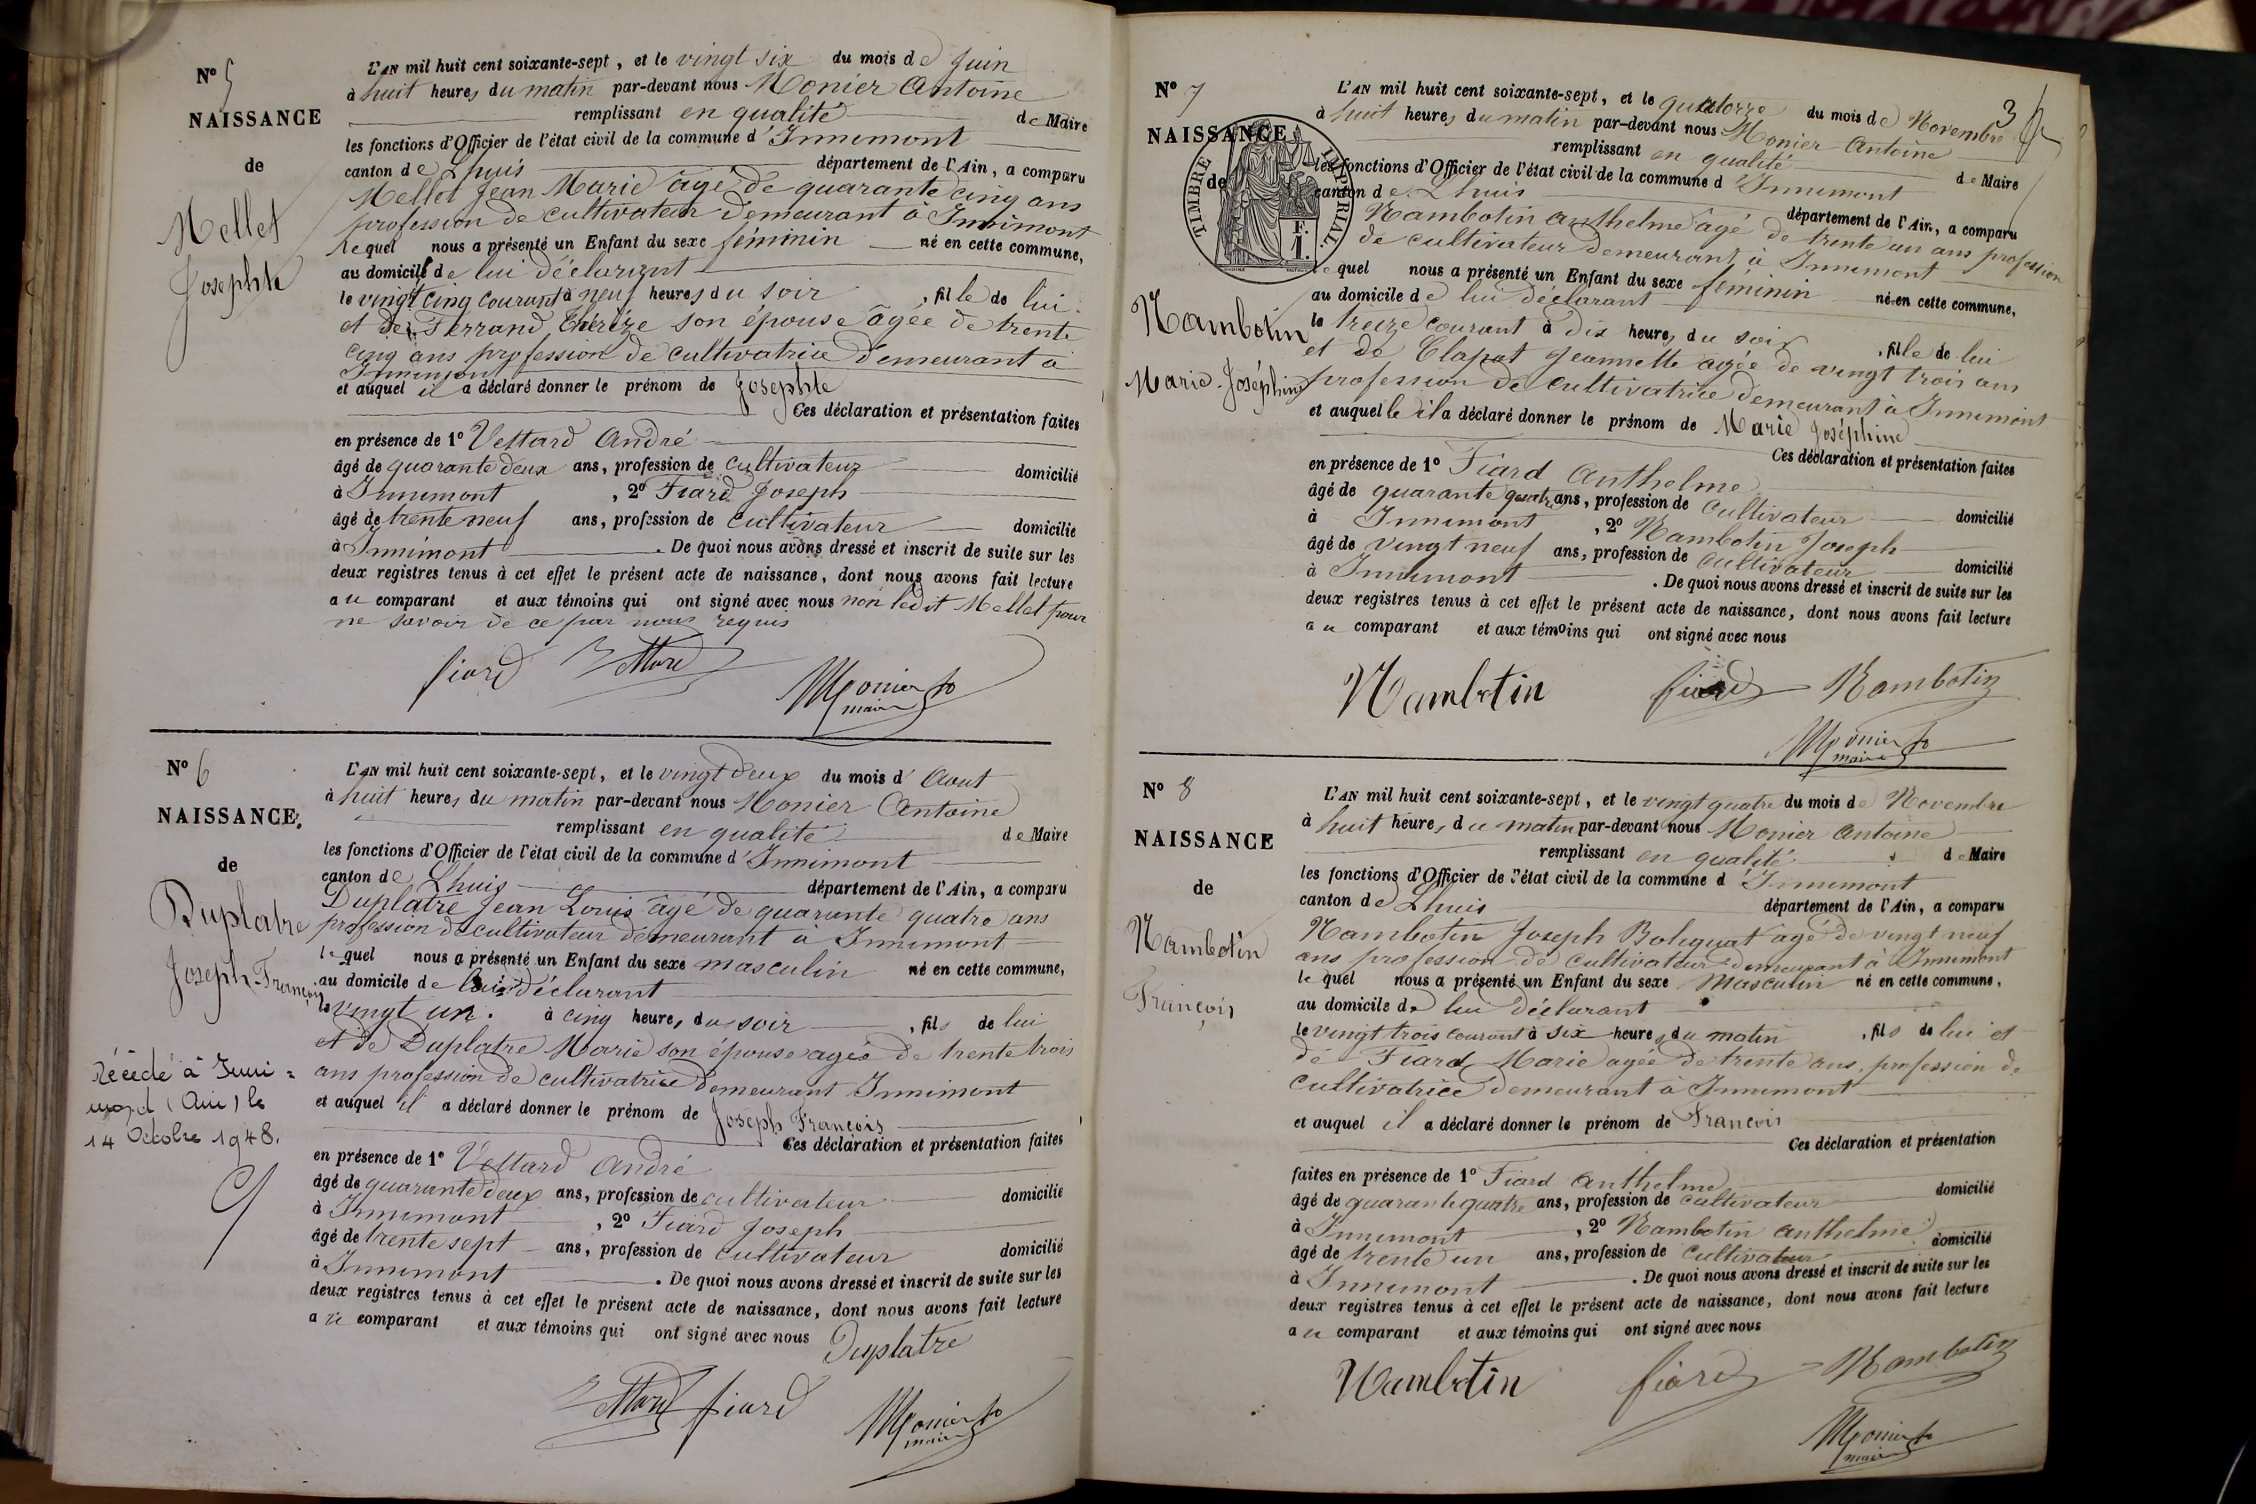 N° 5
NAISSANCE
de
Mellet
Josephte
L'AN mil huit cent soixante-sept, et le vingt six du mois de Juin
à huit heures du matin par-devant nous Monier Antoine
remplissant en qualité de Maire
les fonctions d'Officier de l'état civil de la commune d'Innimont
canton de Lhuis département de l'Ain, a comparu
Mellet Jean Marie âgé de quarante cinq ans
profession de cultivateur demeurant à Innimont
lequel nous a présenté un Enfant du sexe féminin né en cette commune,
au domicile de lui déclarant
le vingt cinq courant à neuf heures du soir, fille de lui
et de Ferrand Thérèze son épouse agée de trente
cinq ans profession de cultivatrice demeurant à
Innimont
et auquel il a déclaré donner le prénom de Josephte
Ces déclaration et présentation faites
en présence de 1° Vettard André
âgé de quarante deux ans, profession de cultivateur domicilié
à Innimont, 2° Fiard Joseph
âgé de trente neuf ans, profession de cultivateur domicilié
à Innimont. De quoi nous avons dressé et inscrit de suite sur les
deux registres tenus à cet effet le présent acte de naissance, dont nous avons fait lecture
au comparant et aux témoins qui ont signé avec nous non ledit Mellet pour
ne savoir de ce par nous requis
fiard Vettard Monier
maire
N° 6
NAISSANCE
de
Duplatre
Joseph-François
Décédé à Inni=
mont (Ain) le
14 Octobre 1948.
L'AN mil huit cent soixante-sept, et le vingt deux du mois d'Aout
à huit heures du matin par-devant nous Monier Antoine
remplissant en qualité de Maire
les fonctions d'Officier de l'état civil de la commune d'Innimont
canton de Lhuis département de l'Ain, a comparu
Duplatre Jean Louis âgé de quarante quatre ans
profession de cultivateur demeurant à Innimont
lequel nous a présenté un Enfant du sexe masculin né en cette commune,
au domicile de lui déclarant
le vingt un. à cinq heures du soir, fils de lui
et de Duplatre Marie son épouse agée de trente trois
ans profession de cultivatrice demeurant Innimont
et auquel il a déclaré donner le prénom de Joseph François
Ces déclaration et présentation faites
en présence de 1° Vettard André
âgé de quarante deux ans, profession de cultivateur domicilié
à Innimont, 2° Fiard Joseph
âgé de trente sept ans, profession de cultivateur domicilié
à Innimont. De quoi nous avons dressé et inscrit de suite sur les
deux registres tenus à cet effet le présent acte de naissance, dont nous avons fait lecture
au comparant et aux témoins qui ont signé avec nous Duplatre
Vettard fiard Monier
maire
3
N° 7
NAISSANCE
de
TIMBRE IMPÉRIAL
F.
1.
Nambotin
Marie-Joséphine
L'AN mil huit cent soixante-sept, et le quatorze du mois de Novembre
à huit heures du matin par-devant nous Monier Antoine
remplissant en qualité de Maire
les fonctions d'Officier de l'état civil de la commune d'Innimont
canton de Lhuis département de l'Ain, a comparu
Nambotin anthelme âgé de trente un ans profession
de cultivateur demeurant à Innimont
lequel nous a présenté un Enfant du sexe féminin né en cette commune,
au domicile de lui déclarant
le treize courant à dix heures du soir, fille de lui
et de Clapot Jeannette agée de vingt trois ans
profession de cultivatrice demeurant à Innimont
et auquelle il a déclaré donner le prénom de Marie Joséphine
Ces déclaration et présentation faites
en présence de 1° Fiard Anthelme
âgé de quarante quatre ans, profession de cultivateur domicilié
à Innimont, 2° Nambotin Joseph
âgé de vingt neuf ans, profession de cultivateur domicilié
à Innimont. De quoi nous avons dressé et inscrit de suite sur les
deux registres tenus à cet effet le présent acte de naissance, dont nous avons fait lecture
au comparant et aux témoins qui ont signé avec nous
Nambotin fiard Nambotin
Monier
maire
N° 8
NAISSANCE
de
Nambotin
François
L'AN mil huit cent soixante-sept, et le vingt quatre du mois de Novembre
à huit heures du matin par-devant nous Monier Antoine
remplissant en qualité de Maire
les fonctions d'Officier de l'état civil de la commune d'Innimont
canton de Lhuis département de l'Ain, a comparu
Nambotin Joseph âgé de vingt neuf
ans profession de cultivateur demeurant à Innimont
lequel nous a présenté un Enfant du sexe Masculin né en cette commune,
au domicile de lui déclarant
le vingt trois courant à six heures du matin, fils de lui et
de Fiard Marie agée de trente ans, profession de
cultivatrice demeurant à Innimont
et auquel il a déclaré donner le prénom de François
Ces déclaration et présentation
faites en présence de 1° Fiard Anthelme
âgé de quarante quatre ans, profession de cultivateur domicilié
à Innimont, 2° Nambotin anthelme
âgé de trente un ans, profession de cultivateur domicilié
à Innimont. De quoi nous avons dressé et inscrit de suite sur les
deux registres tenus à cet effet le présent acte de naissance, dont nous avons fait lecture
au comparant et aux témoins qui ont signé avec nous
Nambotin fiard Nambotin
Monier
maire